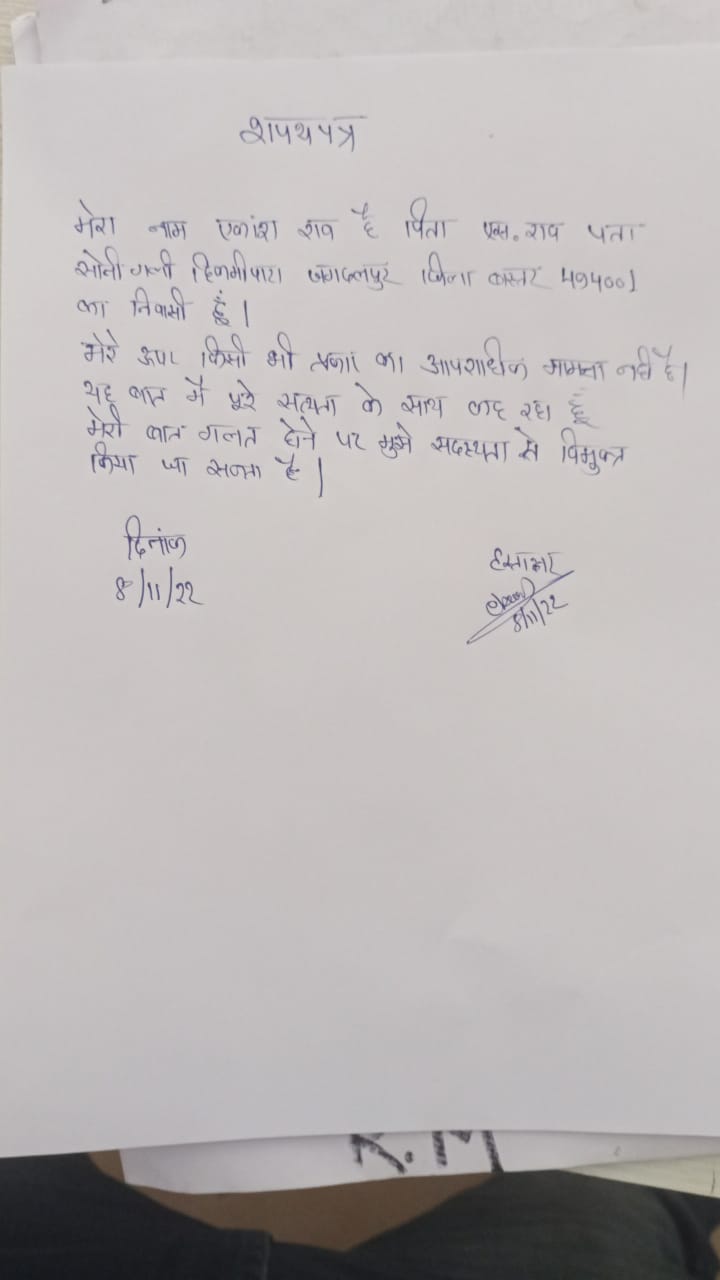 शपथपत्र
मेरा नाम एकांश राव है पिता एस. राव पता
सोनी गली हिकमीपारा जगदलपुर जिला बस्तर 494001
का निवासी हूँ।
मेरे ऊपर किसी भी प्रकार का आपराधिक मामला नहीं है।
यह बात मैं पूरे सत्यता के साथ कह रहा हूँ
मेरी बात गलत होने पर मुझे सदस्यता से विमुक्त
किया जा सकता है।
दिनांक
8/11/22
हस्ताक्षर
8/11/22
R.M